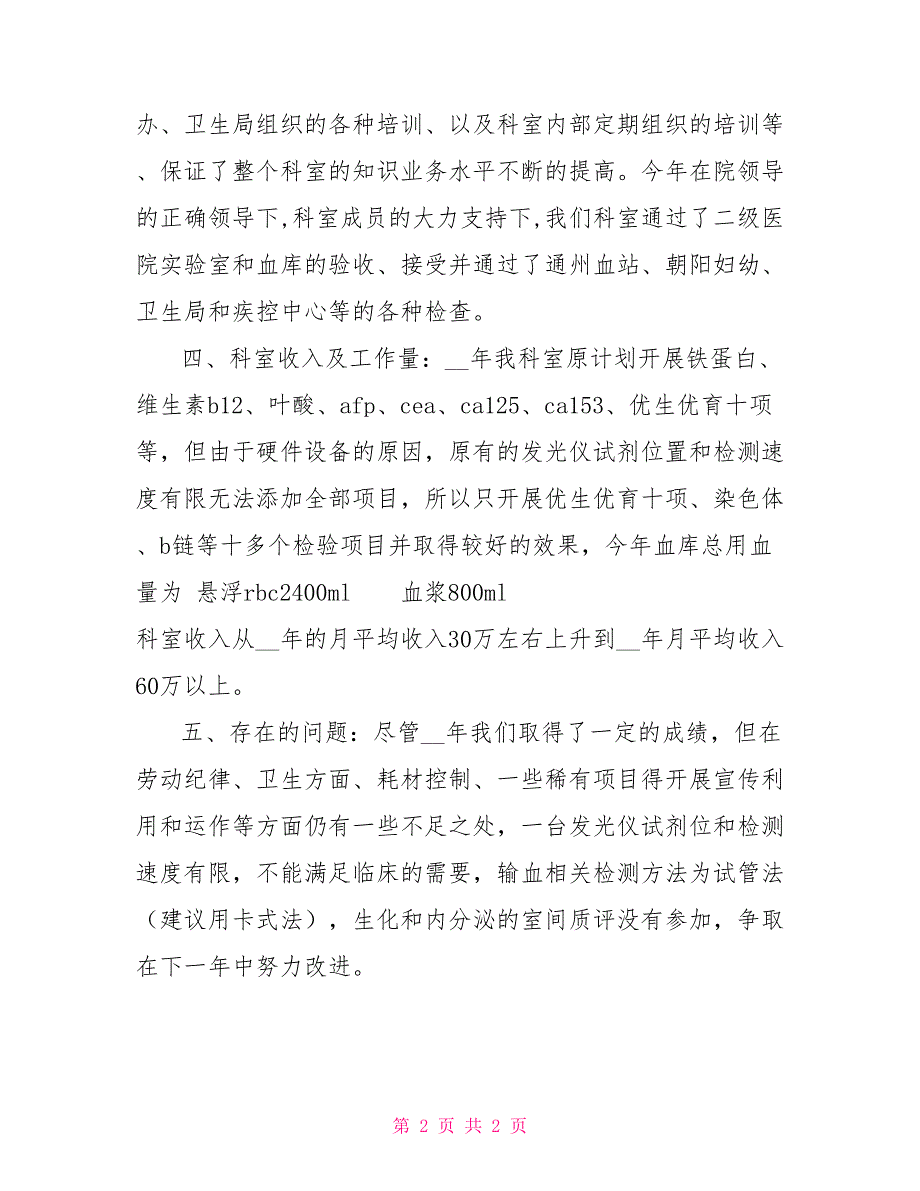 办、卫生局组织的各种培训、以及科室内部定期组织的培训等
、保证了整个科室的知识业务水平不断的提高。今年在院领导
的正确领导下,科室成员的大力支持下,我们科室通过了二级医
院实验室和血库的验收、接受并通过了通州血站、朝阳妇幼、
卫生局和疾控中心等的各种检查。
四、科室收入及工作量：__年我科室原计划开展铁蛋白、
维生素b12、叶酸、afp、cea、ca125、ca153、优生优育十项
等，但由于硬件设备的原因，原有的发光仪试剂位置和检测速
度有限无法添加全部项目，所以只开展优生优育十项、染色体
、b链等十多个检验项目并取得较好的效果，今年血库总用血
量为 悬浮rbc2400ml    血浆800ml
科室收入从__年的月平均收入30万左右上升到__年月平均收入
60万以上。
五、存在的问题：尽管__年我们取得了一定的成绩，但在
劳动纪律、卫生方面、耗材控制、一些稀有项目得开展宣传利
用和运作等方面仍有一些不足之处，一台发光仪试剂位和检测
速度有限，不能满足临床的需要，输血相关检测方法为试管法
（建议用卡式法），生化和内分泌的室间质评没有参加，争取
在下一年中努力改进。
第 2 页 共 2 页